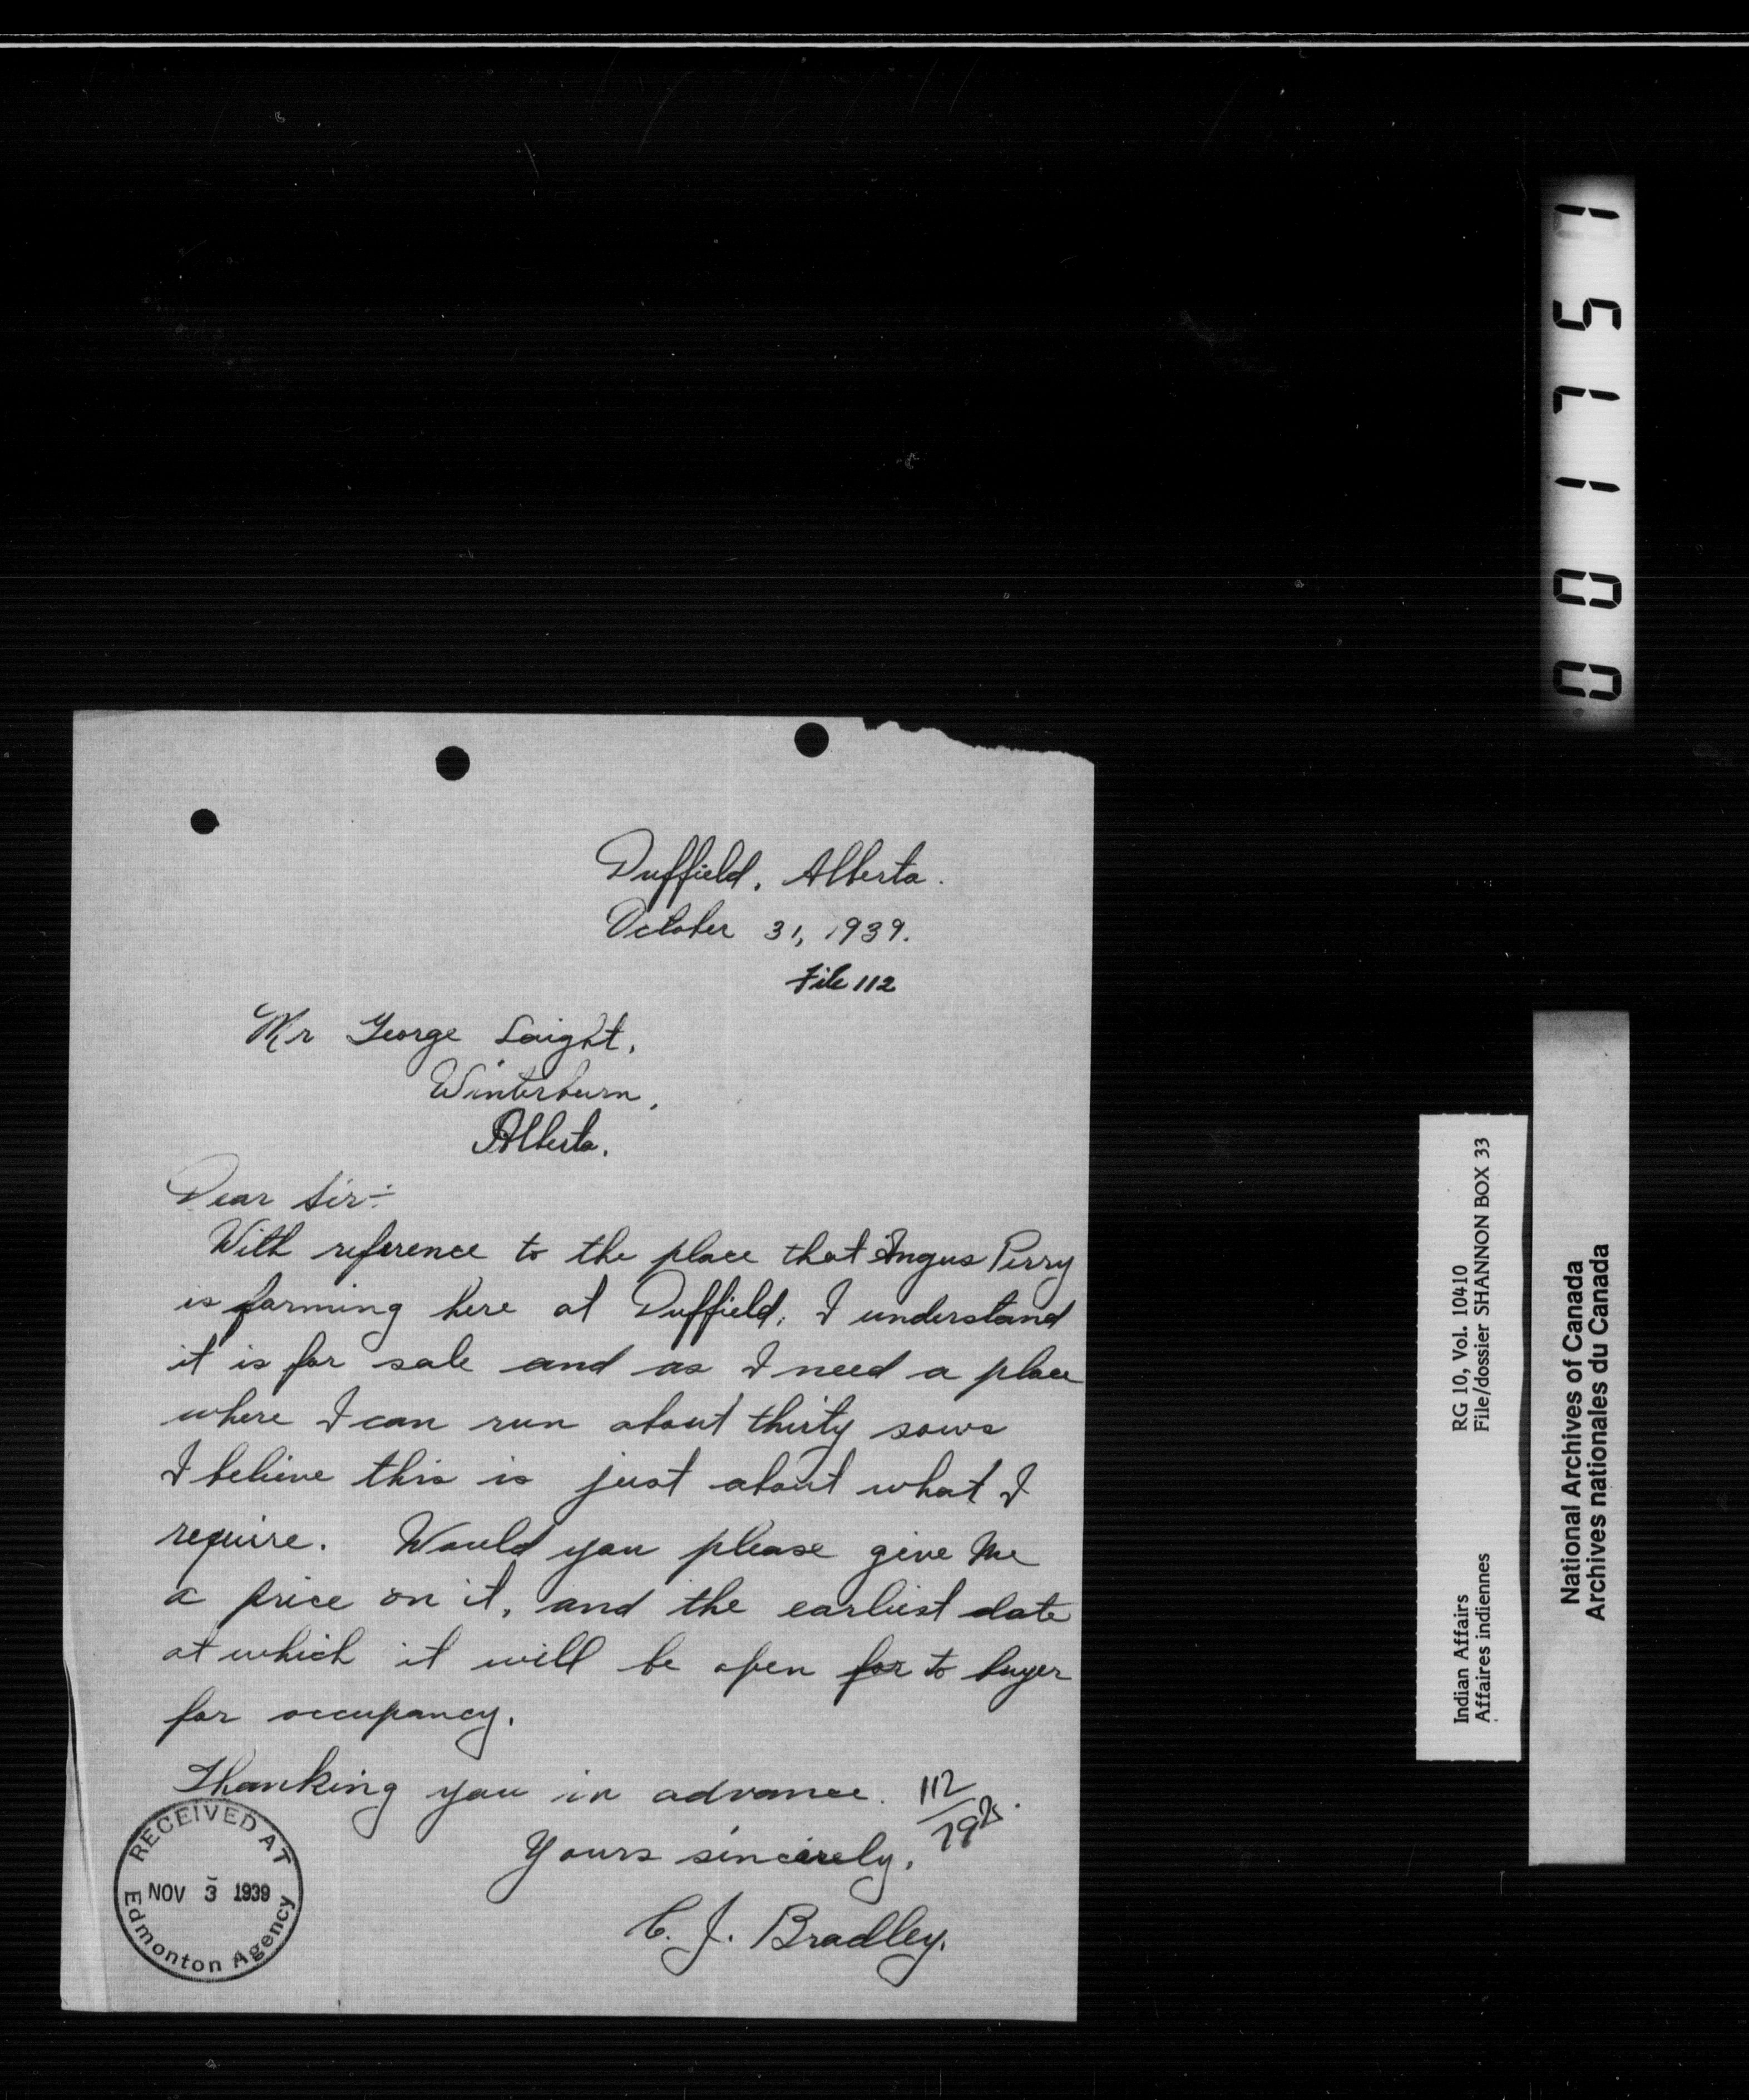 Duffield, Alberta.
October 31, 1939.
File 112
Mr George Laight,
Winterburn,
Alberta.
Dear Sir:-
With reference to the place that Angus Perry
is farming here at Duffield; I understand
it is for sale and as I need a place
where I can run about thirty sows
I believe this is just about what I
require. Would you please give me
a price on it, and the earliest date
at which it will be open for to buyer
for occupancy.
Thanking you in advance.
112
Yours sincerely,
C. J. Bradley.
RECEIVED AT
NOV 3 1939
Edmonton Agency
001751
Indian Affairs RG 10, Vol. 10410
Affaires indiennes File/dossier SHANNON BOX 33
National Archives of Canada
Archives nationales du Canada